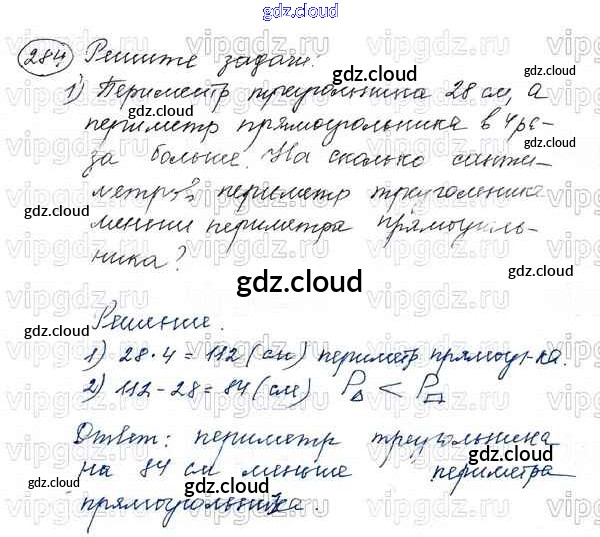 gdz.cloud
284 Решите задачи.
1) Периметр треугольника 28 см, а
периметр прямоугольника в 4 ра-
за больше. На сколько санти-
метров периметр треугольника
меньше периметра прямоуголь-
ника?
gdz.cloud
Решение.
1) 28·4=112 (см) периметр прямоуг-ка.
2) 112-28=84 (см) P△ < P▭
Ответ: периметр треугольника
на 84 см меньше периметра
прямоугольника.